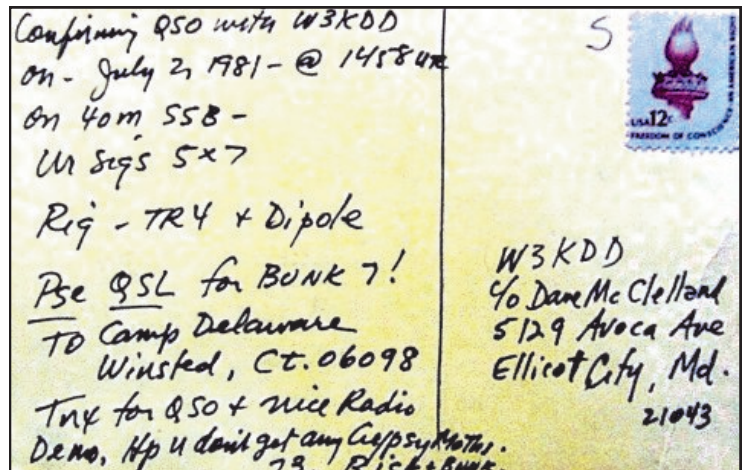 Confirming QSO with W3KDD
on - July 2, 1981 - @ 1458 UTC
On 40m SSB -
Ur sigs 5x7
Rig - TR4 + Dipole
Pse QSL for BUNK 7!
TO Camp Delaware
Winsted, Ct. 06098
Tnx for QSO + nice Radio
Demo, Hp u don't get any Gypsy Moths.
73, Rick + BUNK.
S
USA 12c
FREEDOM OF CONSCIENCE - AN AMERICAN RIGHT
W3KDD
c/o Dave McClelland
5129 Avoca Ave
Ellicot City, Md.
21043